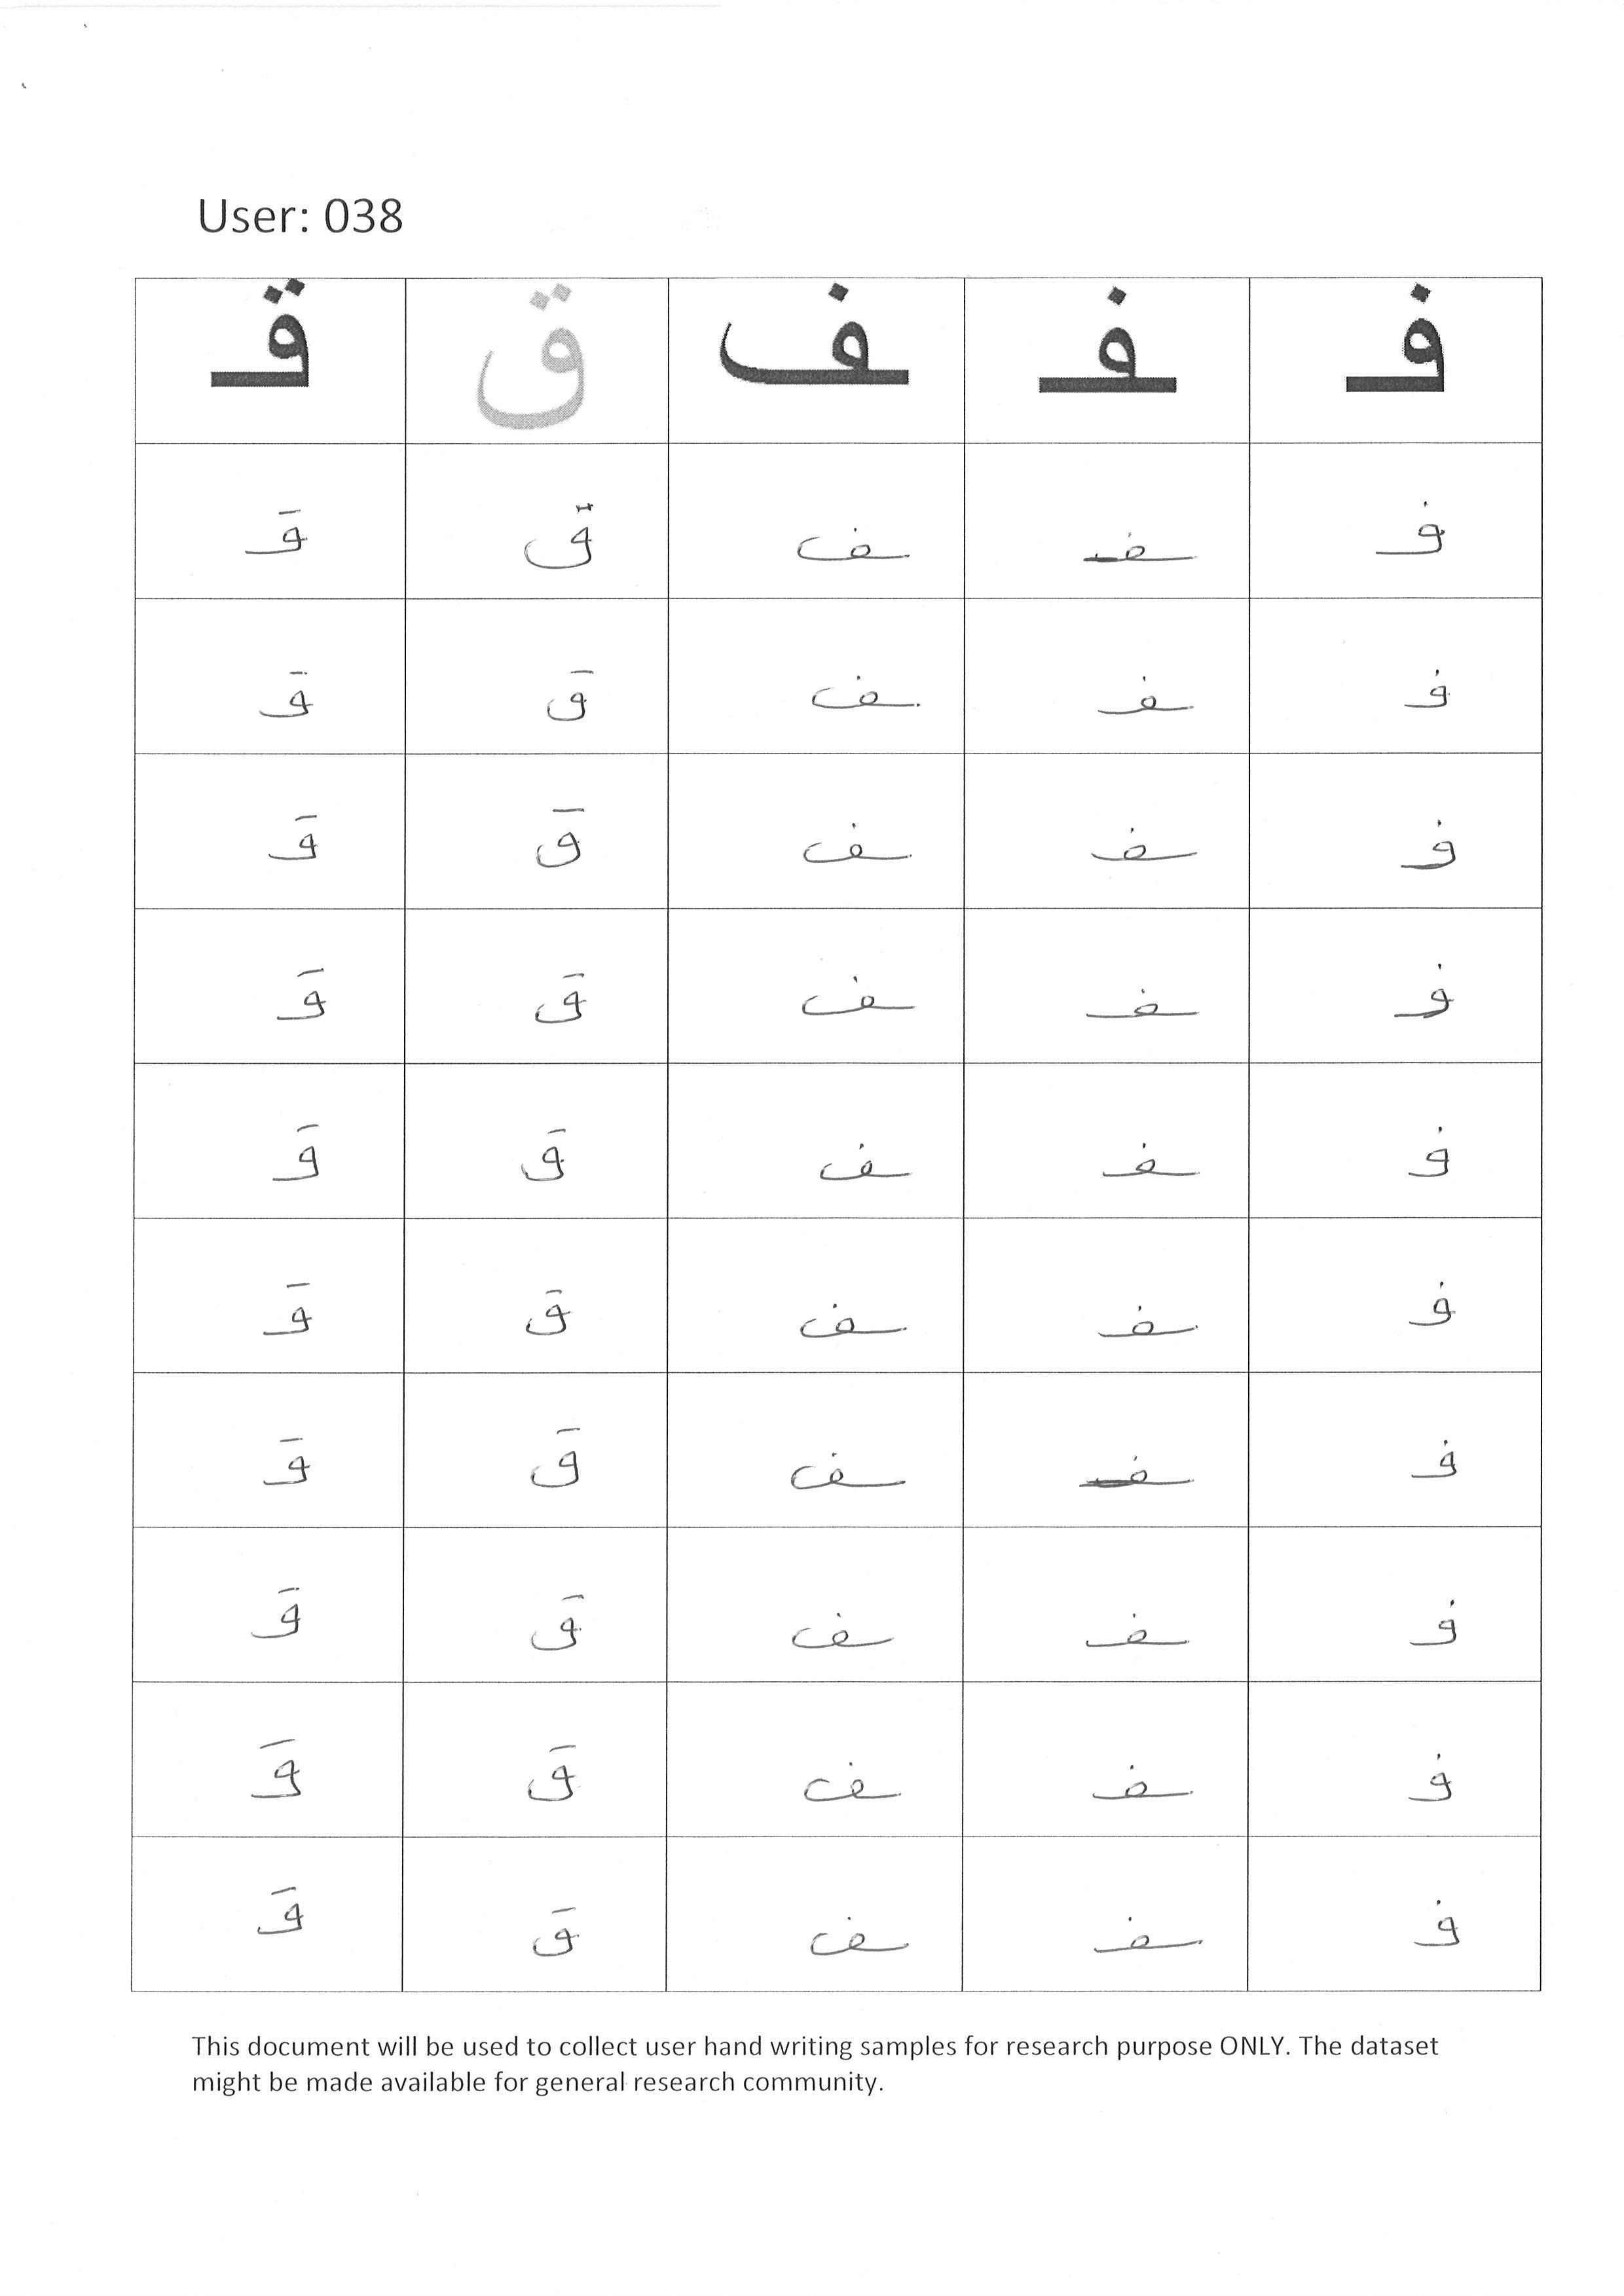 User: 038
فـ ـفـ ـف ق قـ
فـ ـفـ ـف ق قـ
فـ ـفـ ـف ق قـ
فـ ـفـ ـف ق قـ
فـ ـفـ ـف ق قـ
فـ ـفـ ـف ق قـ
فـ ـفـ ـف ق قـ
فـ ـفـ ـف ق قـ
فـ ـفـ ـف ق قـ
فـ ـفـ ـف ق قـ
فـ ـفـ ـف ق قـ
This document will be used to collect user hand writing samples for research purpose ONLY. The dataset
might be made available for general research community.